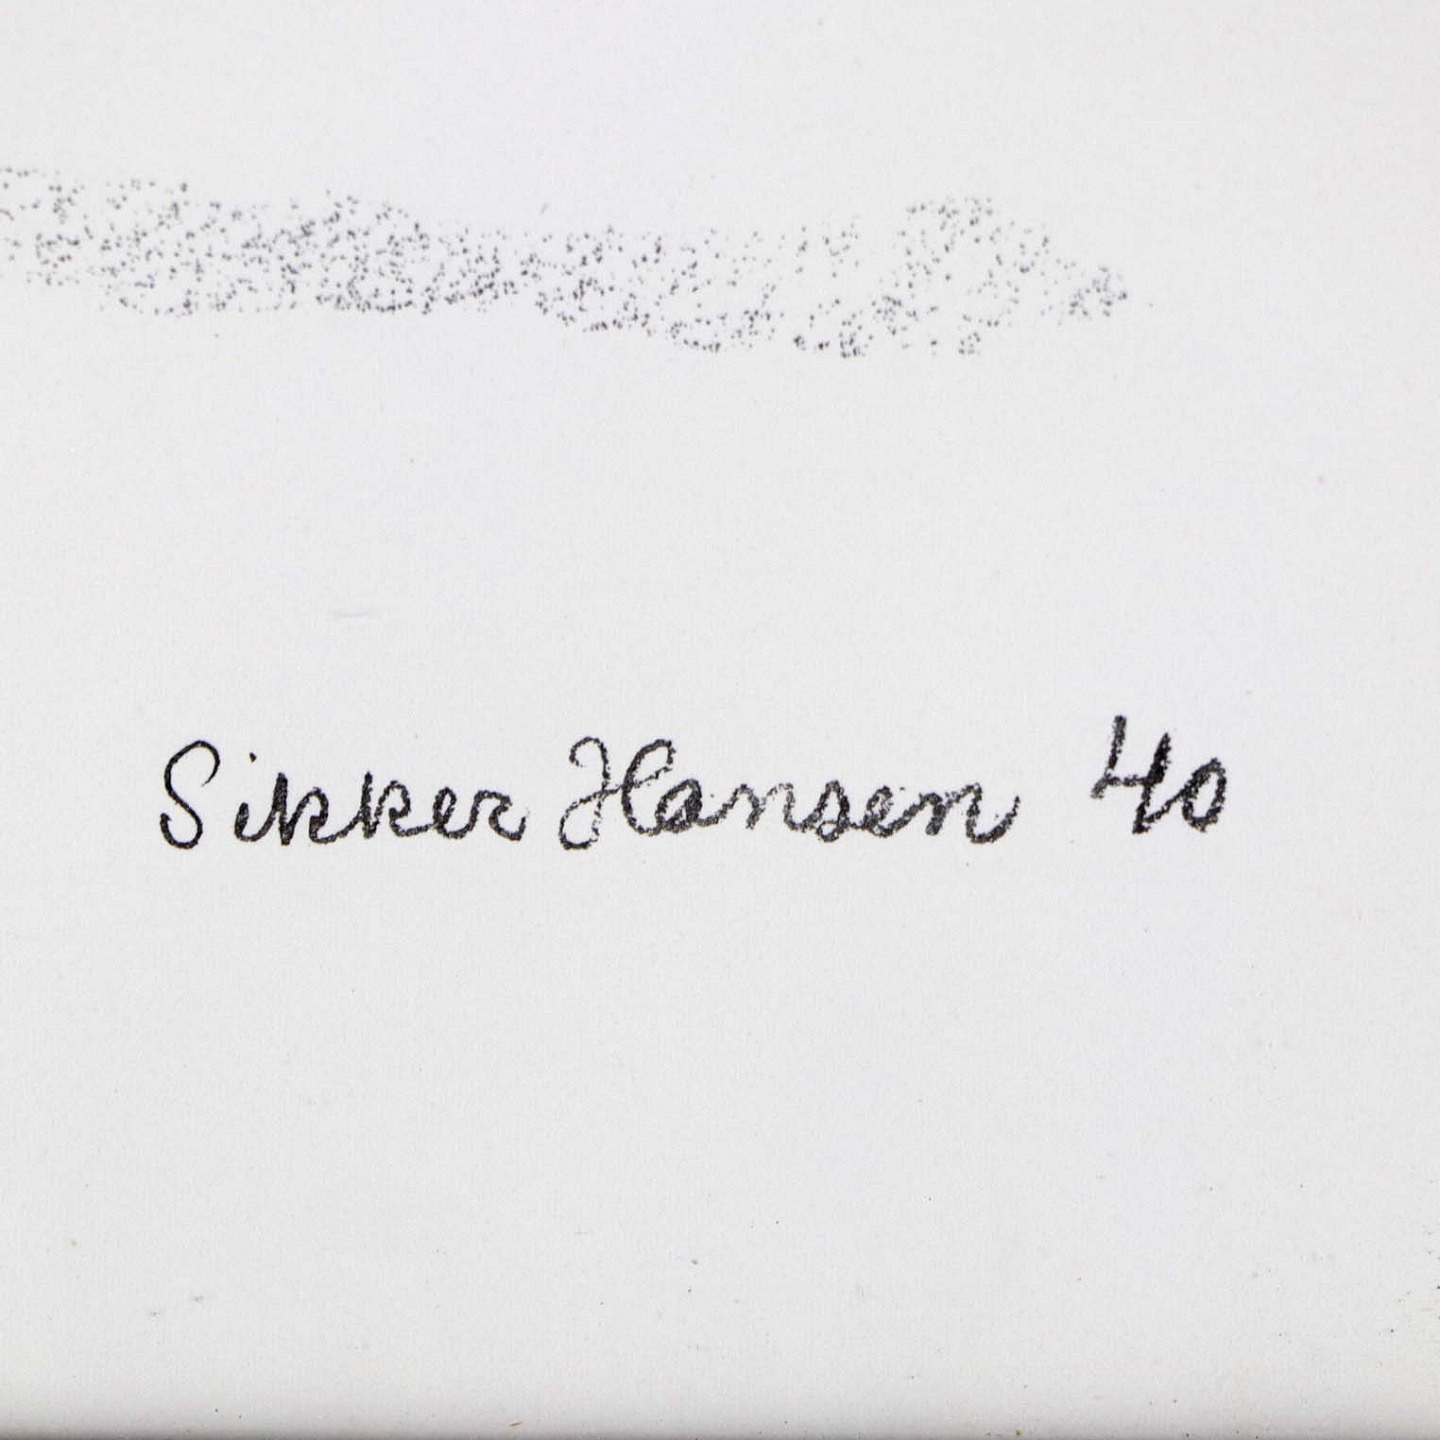 Sikker Hansen 40